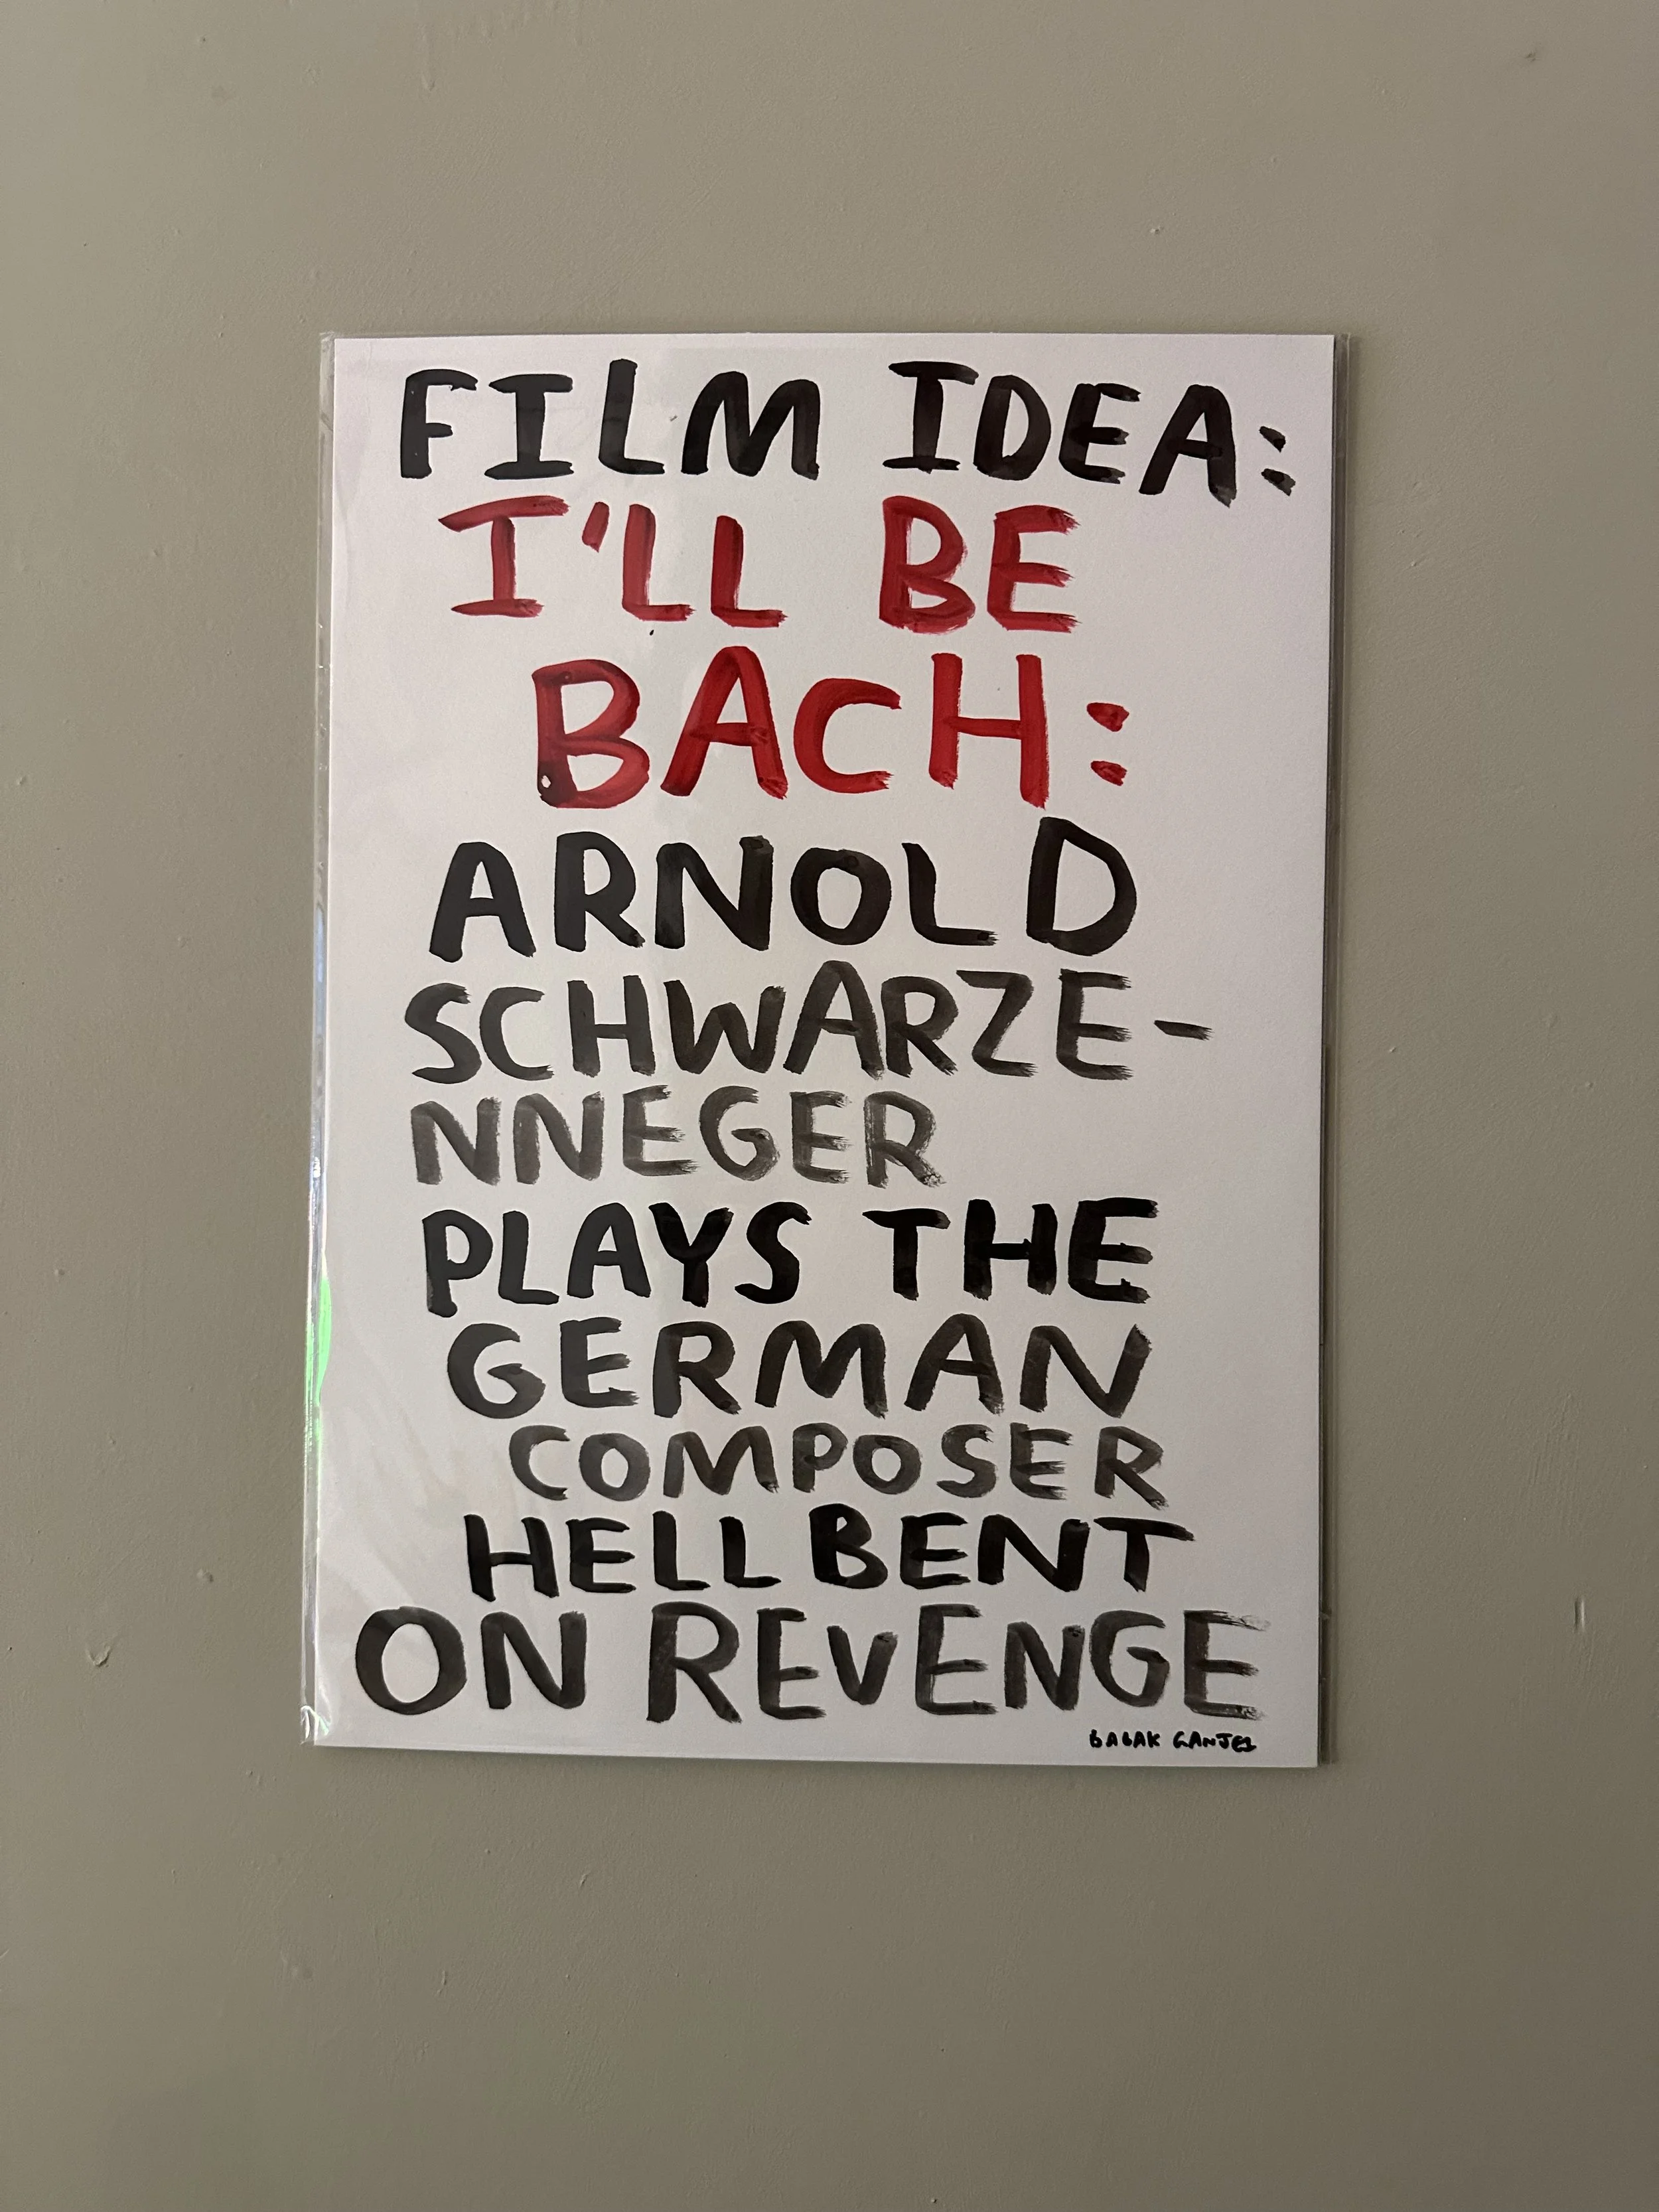 FILM IDEA:
I'LL BE
BACH:
ARNOLD
SCHWARZE-
NNEGER
PLAYS THE
GERMAN
COMPOSER
HELLBENT
ON REVENGE
BABAK GANJEI